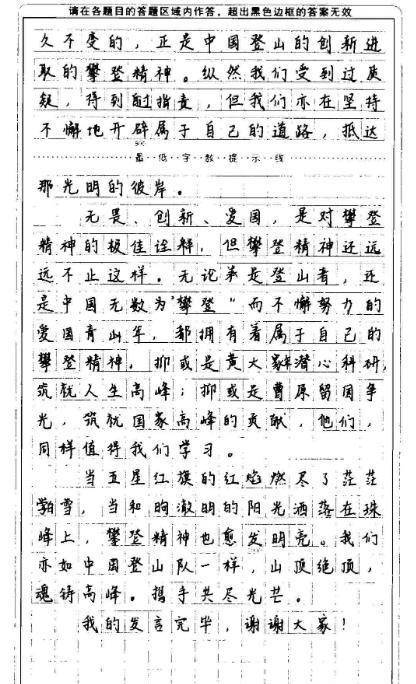 请在各题目的答题区域内作答，超出黑色边框的答案无效
久不变的，正是中国登山的创新进
取的攀登精神。纵然我们受到过质
疑，得到过指责，但我们亦在坚持
不懈地开辟属于自己的道路，抵达
最低字数提示线
那光明的彼岸。
无畏、创新、爱国，是对攀登
精神的极佳诠释，但攀登精神还远
远不止这样。无论是登山者，还
是中国无数为“攀登”而不懈努力的
爱国青年，都拥有着属于自己的
攀登精神，抑或是黄大年潜心科研，
筑就人生高峰；抑或是曹原留国争
光，筑就国家高峰的贡献，他们，
同样值得我们学习。
当五星红旗的红焰燃尽了茫茫
白雪，当和煦澈明的阳光洒落在珠
峰上，攀登精神也愈发明亮。我们
亦如中国登山队一样，山顶绝顶，
魂铸高峰。携手共尽光芒。
我的发言完毕，谢谢大家！